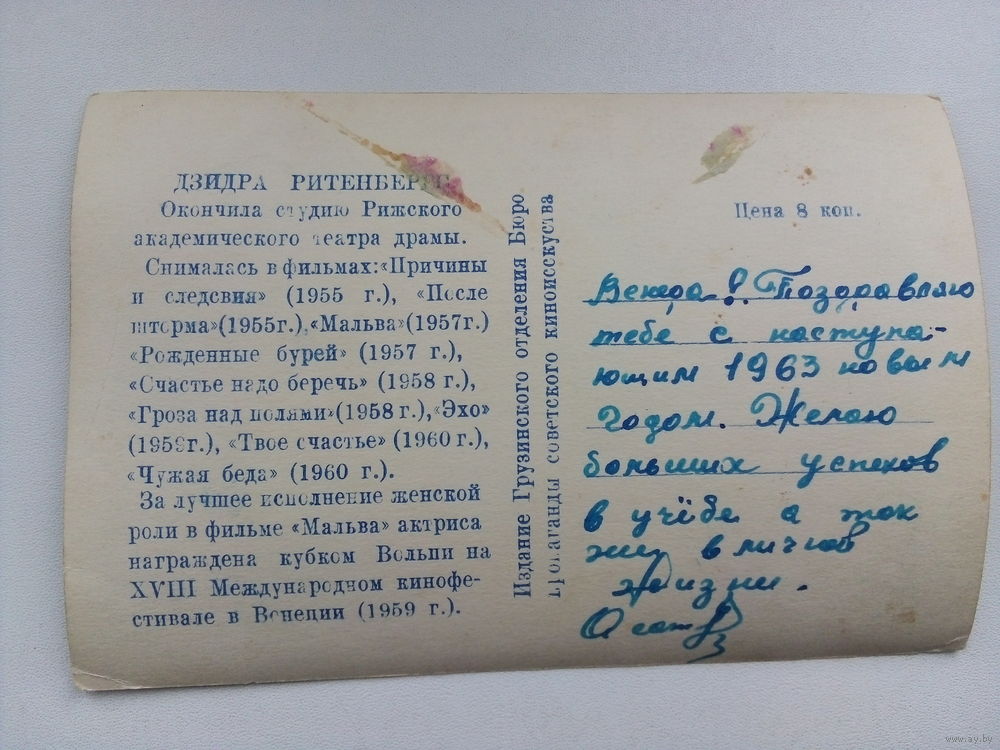 ДЗИДРА РИТЕНБЕРГ
Окончила студию Рижского
академического театра драмы.
Снималась в фильмах: «Причины
и следсвия» (1955 г.), «После
шторма» (1955г.), «Мальва» (1957г.)
«Рожденные бурей» (1957 г.),
«Счастье надо беречь» (1958 г.),
«Гроза над полями» (1958 г.), «Эхо»
(1959г.), «Твое счастье» (1960 г.),
«Чужая беда» (1960 г.).
За лучшее исполнение женской
роли в фильме «Мальва» актриса
награждена кубком Вольпи на
XVIII Международном кинофе-
стивале в Венеции (1959 г.).
Издание Грузинского отделения Бюро
пропаганды советского киноисскуства
Цена 8 коп.
Поздравляю
тебе с наступа-
ющим 1963 новым
годом. Желаю
больших успехов
в учёбе а так
же в личной
жизни.
www.ay.by